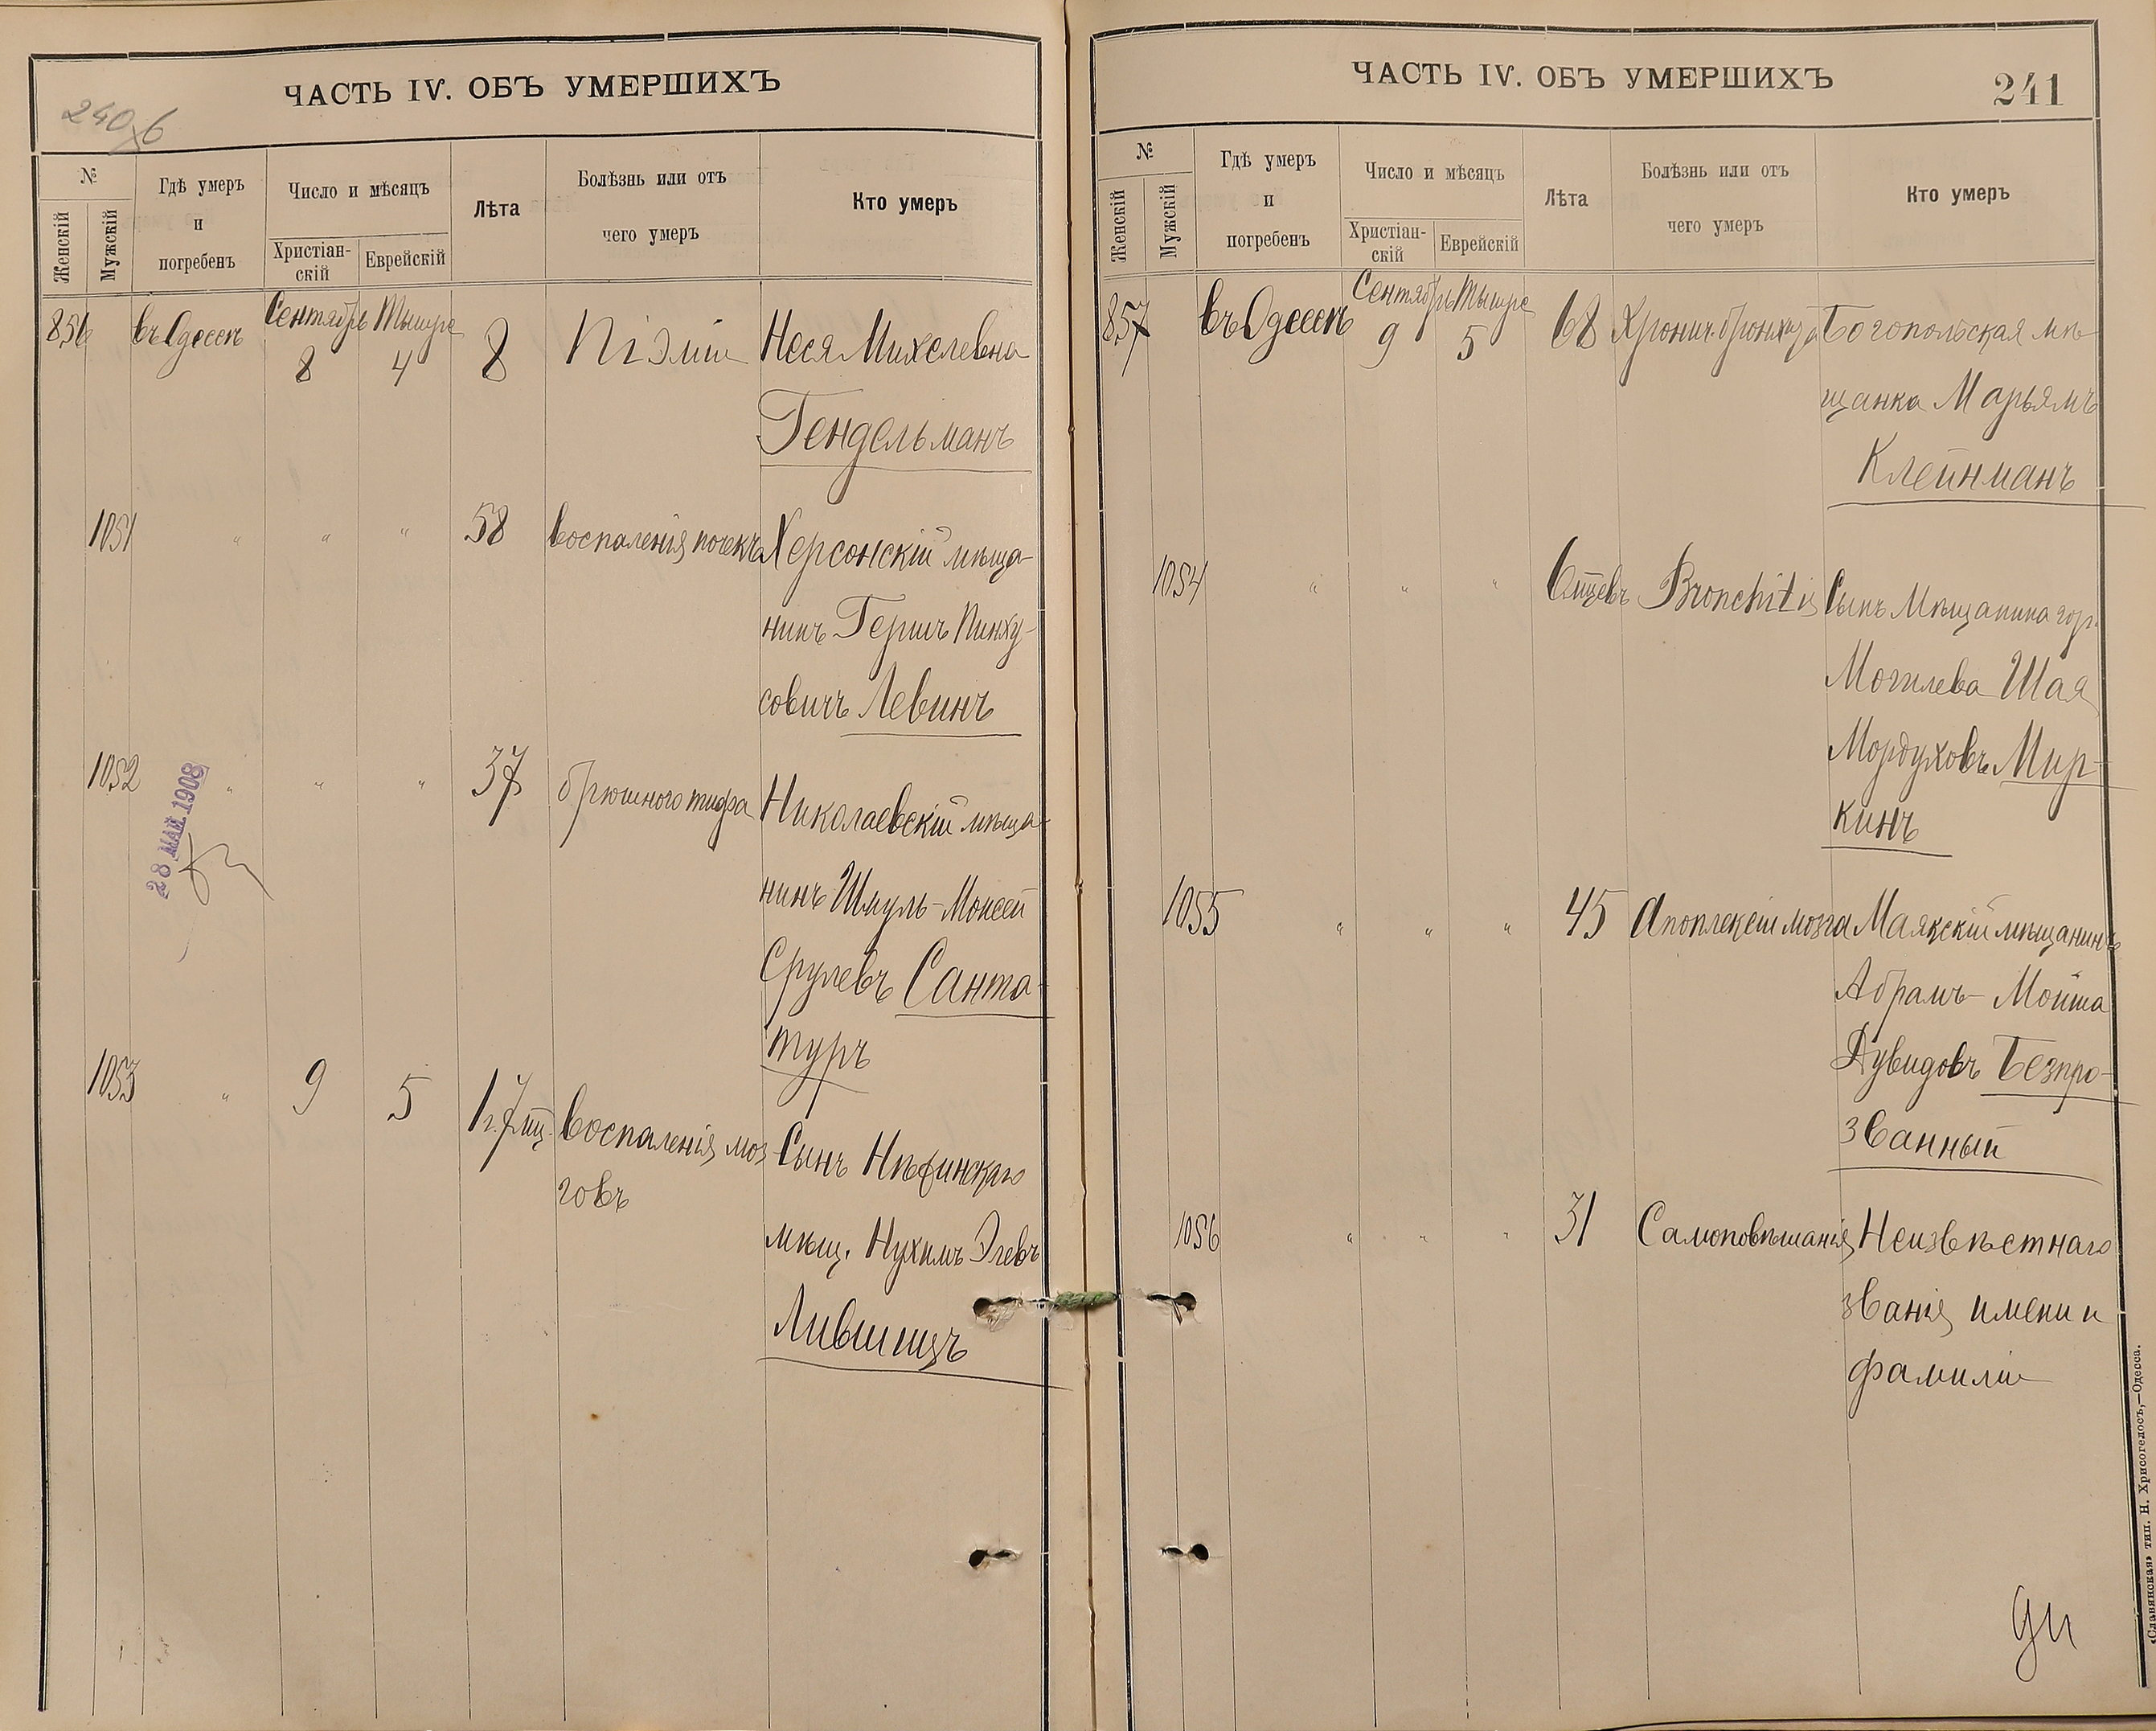 ЧАСТЬ IV. ОБЪ УМЕРШИХЪ
240 б
№
Женскій
Мужскій
Гдѣ умеръ
и
погребенъ
Число и мѣсяцъ
Христіан-
скій
Еврейскій
Лѣта
Болѣзнь или отъ
чего умеръ
Кто умеръ
856 въ Одессѣ Сентябрь 8 Тышре 4 8 Піэміи Нося Михелевна
Гендельманъ
1051 " " " 58 воспаленія почекъ Херсонскій мѣща-
нинъ Гершъ Пинху-
совичъ Левинъ
1052 " " " 37 брюшного тифа Николаевскій мѣща-
нинъ Шмуль-Моисей
Срулевъ Санта-
туръ
28 МАЙ 1908
1053 " 9 5 1 г. 7 мц. воспаленія моз Сынъ Нѣжинскаго
говъ
мѣщ. Нухимъ Элевъ
Лившицъ
ЧАСТЬ IV. ОБЪ УМЕРШИХЪ
241
№
Женскій
Мужскій
Гдѣ умеръ
и
погребенъ
Число и мѣсяцъ
Христіан-
скій
Еврейскій
Лѣта
Болѣзнь или отъ
чего умеръ
Кто умеръ
857 въ Одессѣ Сентябрь 9 Тышре 5 68 Хронич. бронхита Богопольская мѣ-
щанка Марьямъ
Клейнманъ
1054 " " " 6 мцевъ Bronchitis Сынъ Мѣщанина гор.
Могилева Шая
Мордуховъ Мир-
кинъ
1055 " " " 45 Апоплексіи мозга Маякскій мѣщанинъ
Абрамъ-Мойша
Дувидовъ Безпро-
званный
1056 " " " 31 Самоповѣшанія Неизвѣстнаго
званія имени и
фамиліи
«Славянская» тип. Н. Хрисогелосъ,—Одесса.